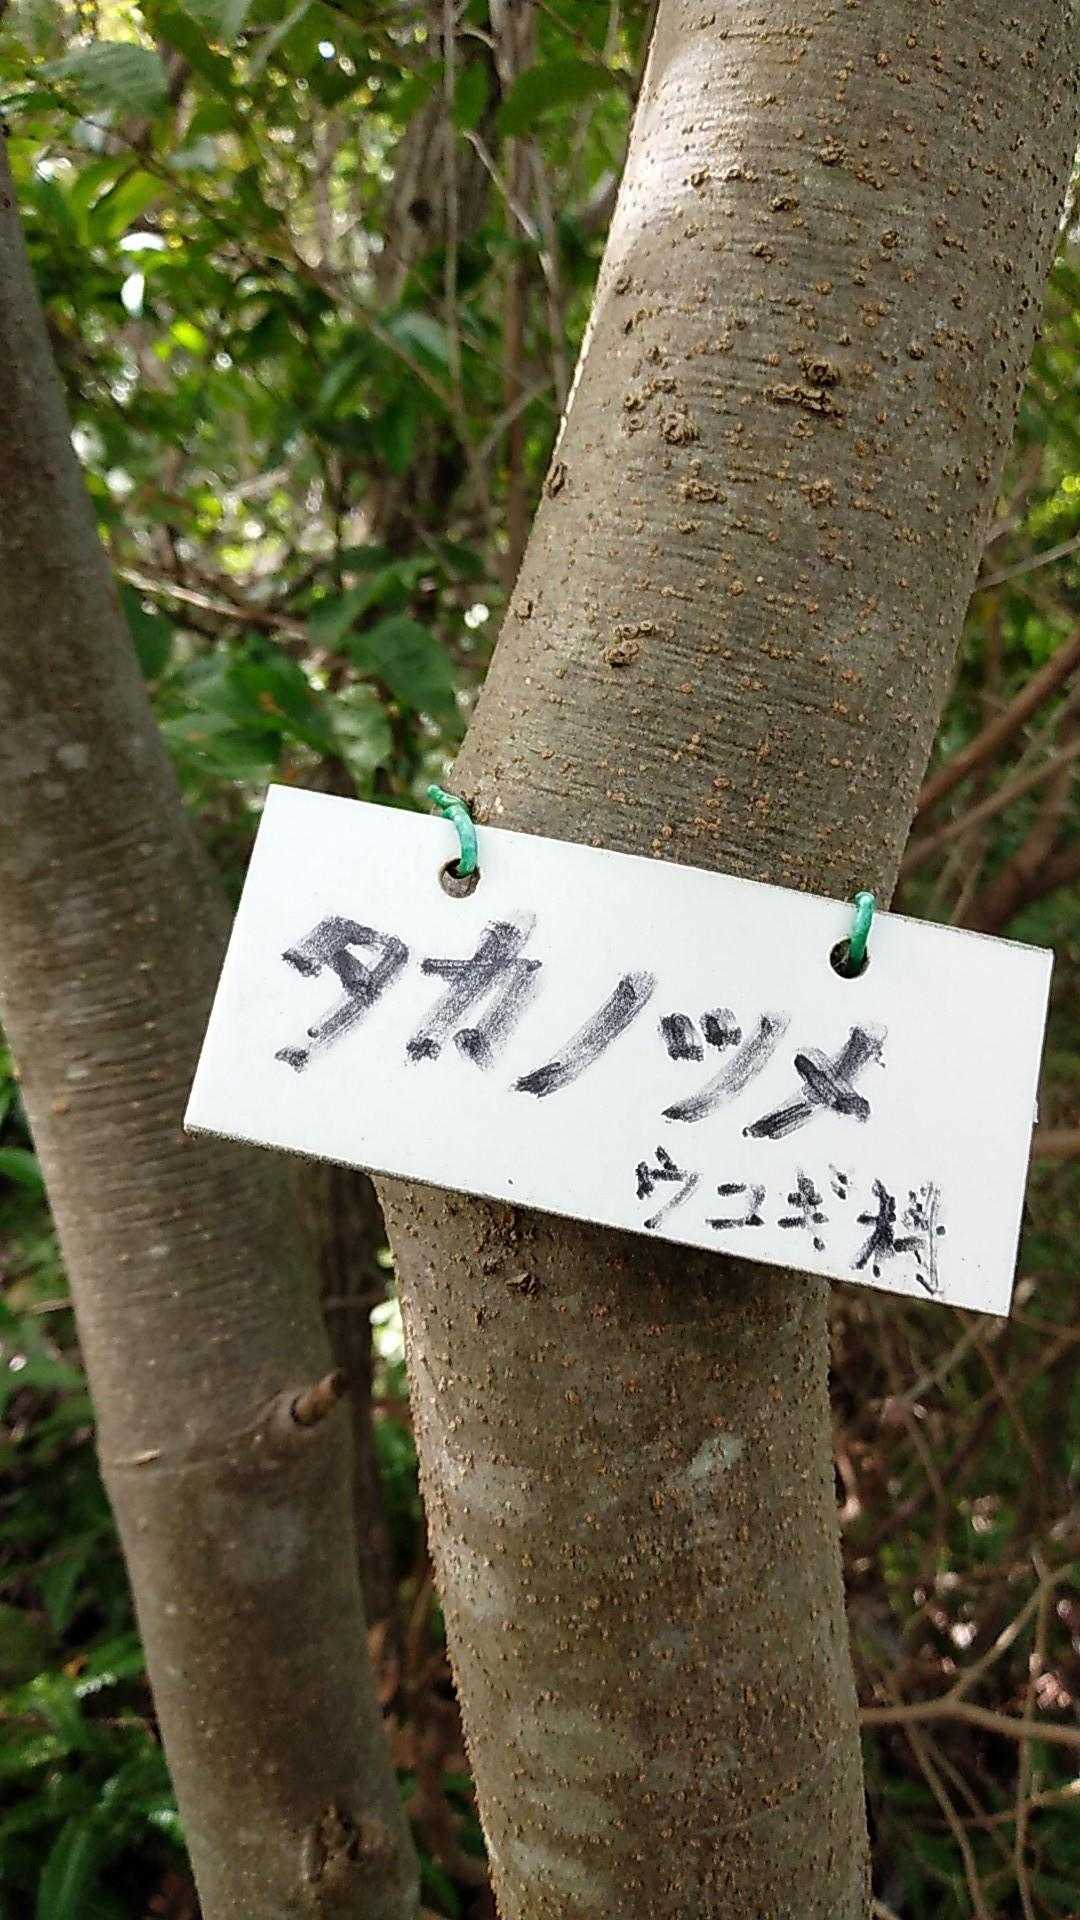 タカノツメ
ウコギ科